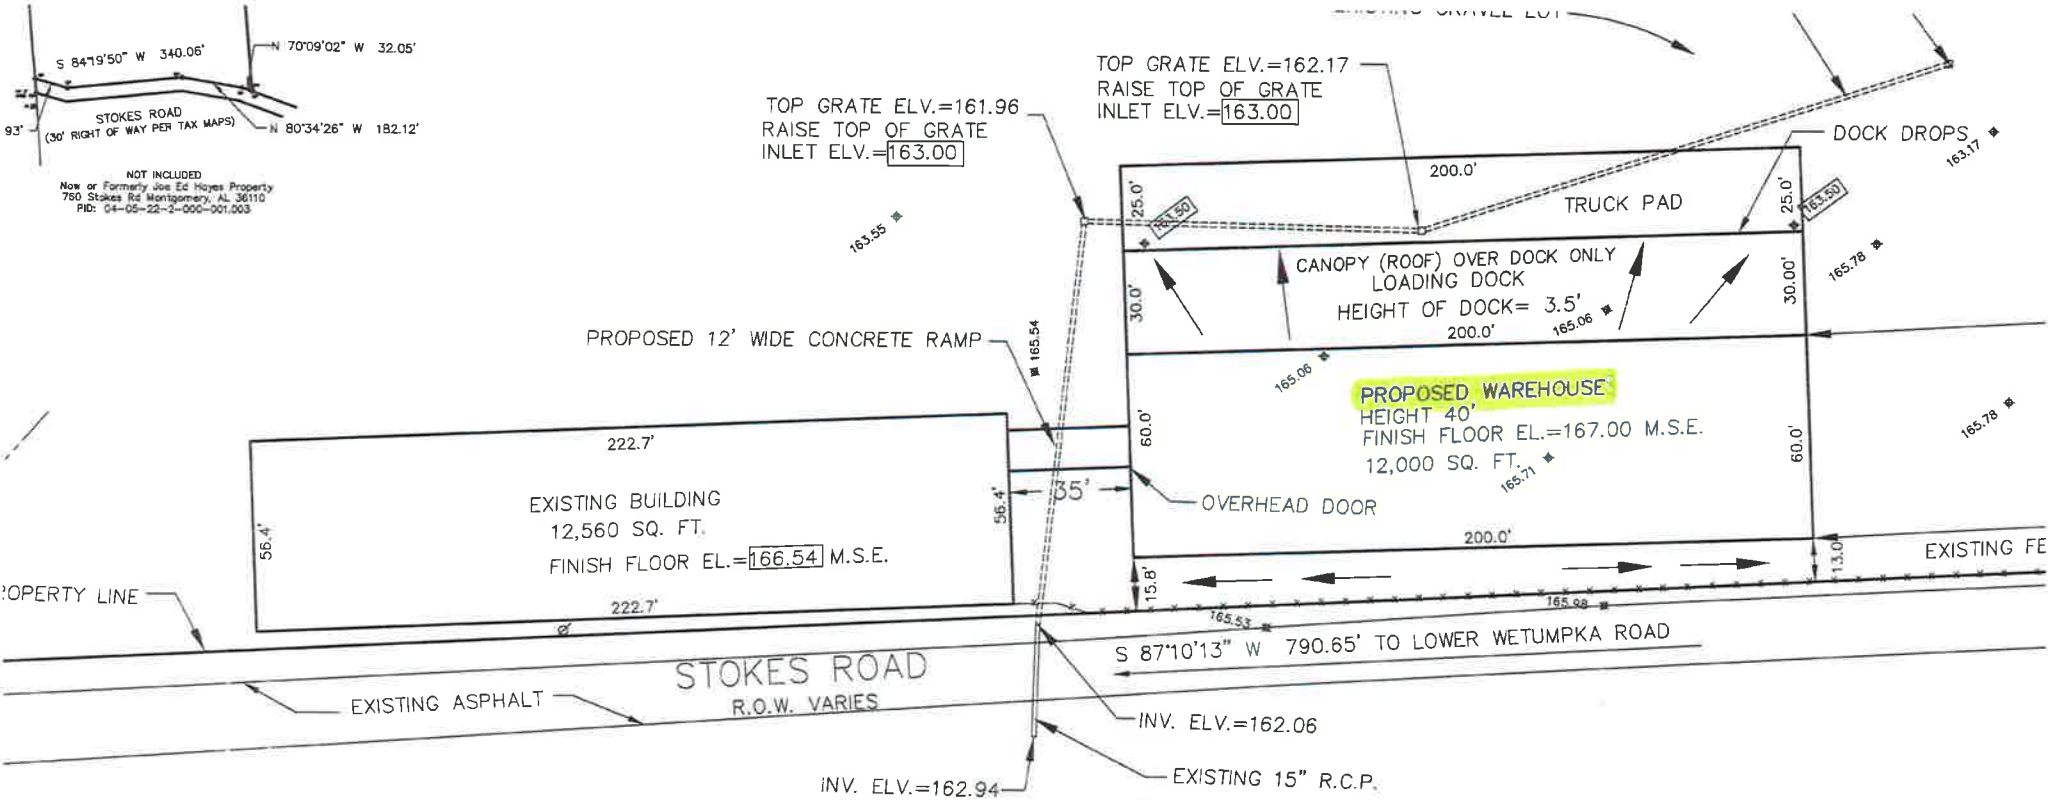 S 84°19'50" W 340.06'
N 70°09'02" W 32.05'
93'
STOKES ROAD
(30' RIGHT OF WAY PER TAX MAPS)
N 80°34'26" W 182.12'
NOT INCLUDED
Now or Formerly Joe Ed Hayes Property
750 Stokes Rd Montgomery, AL 36110
PID: 04-05-22-2-000-001.003
TOP GRATE ELV.=161.96
RAISE TOP OF GRATE
INLET ELV.=163.00
TOP GRATE ELV.=162.17
RAISE TOP OF GRATE
INLET ELV.=163.00
EXISTING GRAVEL LOT
DOCK DROPS
163.17
163.55
25.0'
163.50
200.0'
TRUCK PAD
25.0'
163.50
165.78
CANOPY (ROOF) OVER DOCK ONLY
LOADING DOCK
HEIGHT OF DOCK= 3.5'
165.06
30.0'
30.00'
200.0'
PROPOSED 12' WIDE CONCRETE RAMP
165.54
165.06
PROPOSED WAREHOUSE
HEIGHT 40'
FINISH FLOOR EL.=167.00 M.S.E.
12,000 SQ. FT.
165.71
60.0'
60.0'
165.78
222.7'
EXISTING BUILDING
12,560 SQ. FT.
FINISH FLOOR EL.=166.54 M.S.E.
56.4'
56.4'
35'
OVERHEAD DOOR
200.0'
222.7'
15.8'
13.0'
EXISTING FE
OPERTY LINE
165.53
165.98
S 87°10'13" W 790.65' TO LOWER WETUMPKA ROAD
STOKES ROAD
R.O.W. VARIES
EXISTING ASPHALT
INV. ELV.=162.06
EXISTING 15" R.C.P.
INV. ELV.=162.94